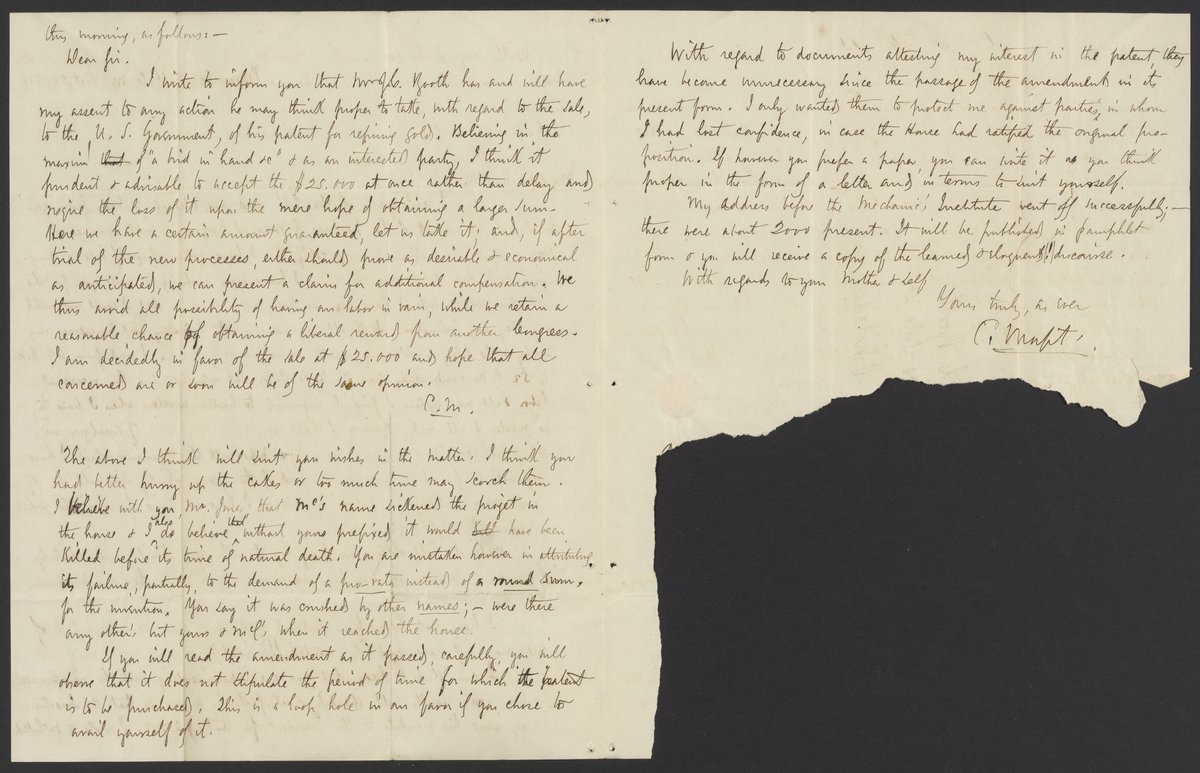 this morning, as follows:—
Dear Sir.
I write to inform you that Booth has and will have
my assent to any action he may think proper to take, with regard to the sale,
to the U. S. Government, of his patent for refining gold. Believing in the
maxim that of "a bird in hand &c" & as an interested party, I think it
prudent & advisable to accept the $25.000 at once rather than delay and
the loss of it upon the mere hope of obtaining a larger sum.
Here we have a certain amount guaranteed, let us take it; and, if after
trial of the new processes, either should prove as desirable & economical
as anticipated, we can present a claim for additional compensation. We
thus avoid all possibility of having our labor in vain, while we retain a
reasonable chance of obtaining a liberal reward from another Congress.
I am decidedly in favor of the sale at $25.000 and hope that all
concerned are or soon will be of the same opinion.
C. M.
The above I think will suit your wishes in the matter. I think you
had better hurry up the cakes or too much time may scorch them.
I believe with you, that Mc's name sickened the projet in
the house & I also do believe that without yours prefixed it would kill have been
killed before its time of natural death. You are mistaken however in attributing
its failure, partially, to the demand of a pro-rata instead of a round sum,
for the invention. You say it was crushed by other names; — were there
any others but yours & McC's when it reached the house.
If you will read the amendment as it passed, carefully, you will
observe that it does not stipulate the period of time for which the patent
is to be purchased. This is a loop hole in our favor if you chose to
avail yourself of it.
With regard to documents attesting my interest in the patent, they
have become unnecessary since the passage of the amendment in its
present form. I only wanted them to protect me against parties, in whom
I had lost confidence, in case the House had ratified the original pro-
position. If however you prefer a paper, you can write it as you think
proper in the form of a letter and in terms to suit yourself.
My address before the Mechanics' Institute went off successfully;—
there were about 2000 present. It will be published in pamphlet
form & you will receive a copy of the learned & eloquent(!) discourse.
With regards to your Mother & self
Yours truly, as ever
C. Morfit.